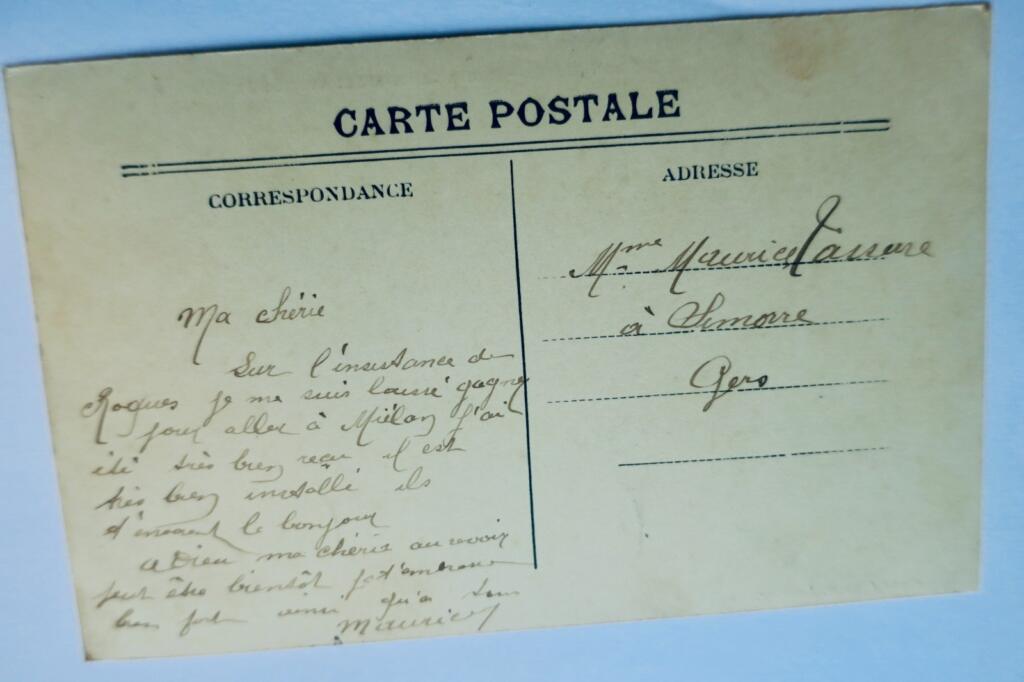 CARTE POSTALE
CORRESPONDANCE
ADRESSE
Mme Maurice
à Simorre
Gers
Ma chérie
Sur l'insistance de
Roques je me suis laissé gagner
pour aller à Miélan j'ai
été très bien reçu il est
très bien installé ils
t'envoient le bonjour
adieu ma chérie au revoir
peut être bientôt je t'embrasse
bien fort ainsi qu'à tous
Maurice